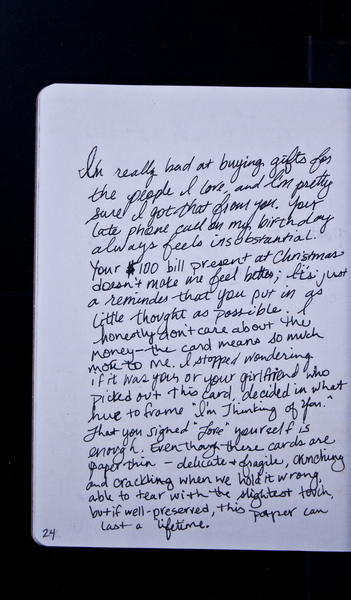 I'm really bad at buying gifts for
the people I love, and I'm pretty
sure I got that from you. Your
late phone call on my birthday
always feels insubstantial.
Your $100 bill present at Christmas
doesn't make me feel better; it's just
a reminder that you put in as
little thought as possible. I
honestly don't care about the
money—the card means so much
more to me. I stopped wondering
if it was you or your girlfriend who
picked out this card, decided in what
hue to frame "I'm Thinking of You."
That you signed "Love" yourself is
enough. Even though these cards are
paper thin - delicate & fragile, crunching
and crackling when we hold it wrong,
able to tear with the slightest touch,
but if well-preserved, this paper can
last a lifetime.
24